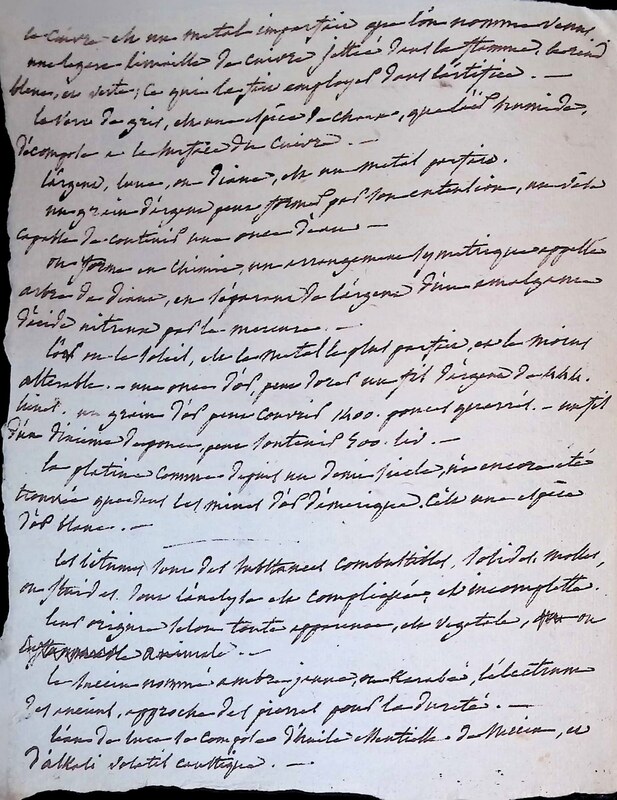 le cuivre est un metal imparfait que l'on nomme venus.
une legere limaille de cuivre jettée dans la flamme, la rend
bleue, et verte; ce qui la fait employer dans l'artifice. —
le verre de gris, est une espèce de chaux, que l'air humide,
décompose a la surface du cuivre. —
l'argent, lune, ou Diane, est un metal parfait.
un grain d'argent peut former par son extention, un
capable de contenir une once d'eau —
on forme en chimie, un arrangement symetrique appellé
arbre de diane, en séparant de l'argent d'un amalgame
d'acide nitreux par le mercure. —
l'or ou le soleil, est le metal le plus parfait, et le moins
alterable. — une once d'or, peut dorer un fil d'argent de 444.
lieues. un grain d'or peut couvrir 1400. pouces quarrés. — un fil
d'un dixieme de pouce, peut soutenir 500. liv. —
la platine connue depuis un demi siecle, n'a encore été
trouvée que dans les mines d'or d'amerique. C'est une espèce
d'or blanc. —
les bitumes sont des substances combustibles, solides, molles,
ou fluides. dont l'analyse est compliquée, et incomplette.
leur origine selon toute apparence, est vegetale, ou
animale. —
le succin nommé ambre jaune, ou Karabé, l'électrum
des anciens, approche des pierres pour la dureté. —
l'eau de luce se compose d'huile essentielle de succin, et
d'alkali volatil caustique. —